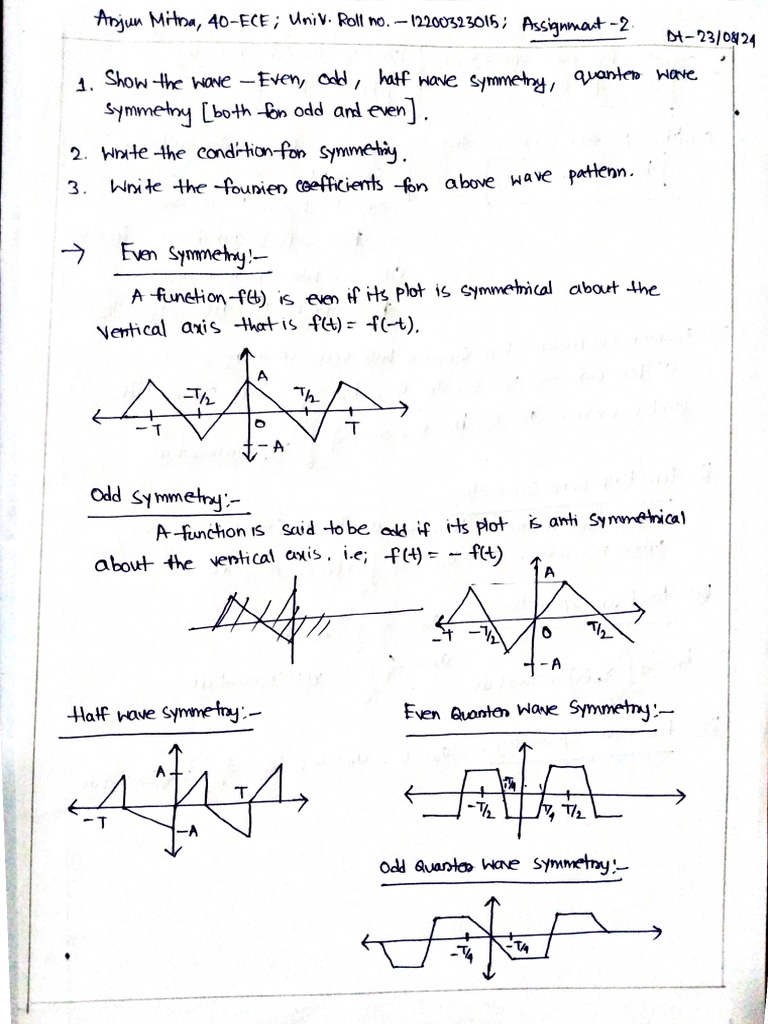 Arjun Mitra, 40-ECE; Univ. Roll no. - 12200323015; Assignment-2.
Dt-23/08/24
1. Show the wave - Even, odd, half wave symmetry, quarter wave
symmetry [both for odd and even].
2. Write the condition for symmetry.
3. Write the fourier coefficients for above wave pattern.
→ Even Symmetry:-
A function f(t) is even if its plot is symmetrical about the
vertical axis that is f(t) = f(-t).
A
-T -T/2 O T/2 T
-A
Odd Symmetry:-
A function is said to be odd if its plot is anti symmetrical
about the vertical axis. i.e; f(t) = - f(t)
A
-T -T/2 O T/2
-A
Half wave symmetry:-
A
-T T
-A
Even Quarter Wave Symmetry:-
-T/2 -T/4 T/4 T/2
Odd Quarter Wave Symmetry:-
-T/4 -T/4